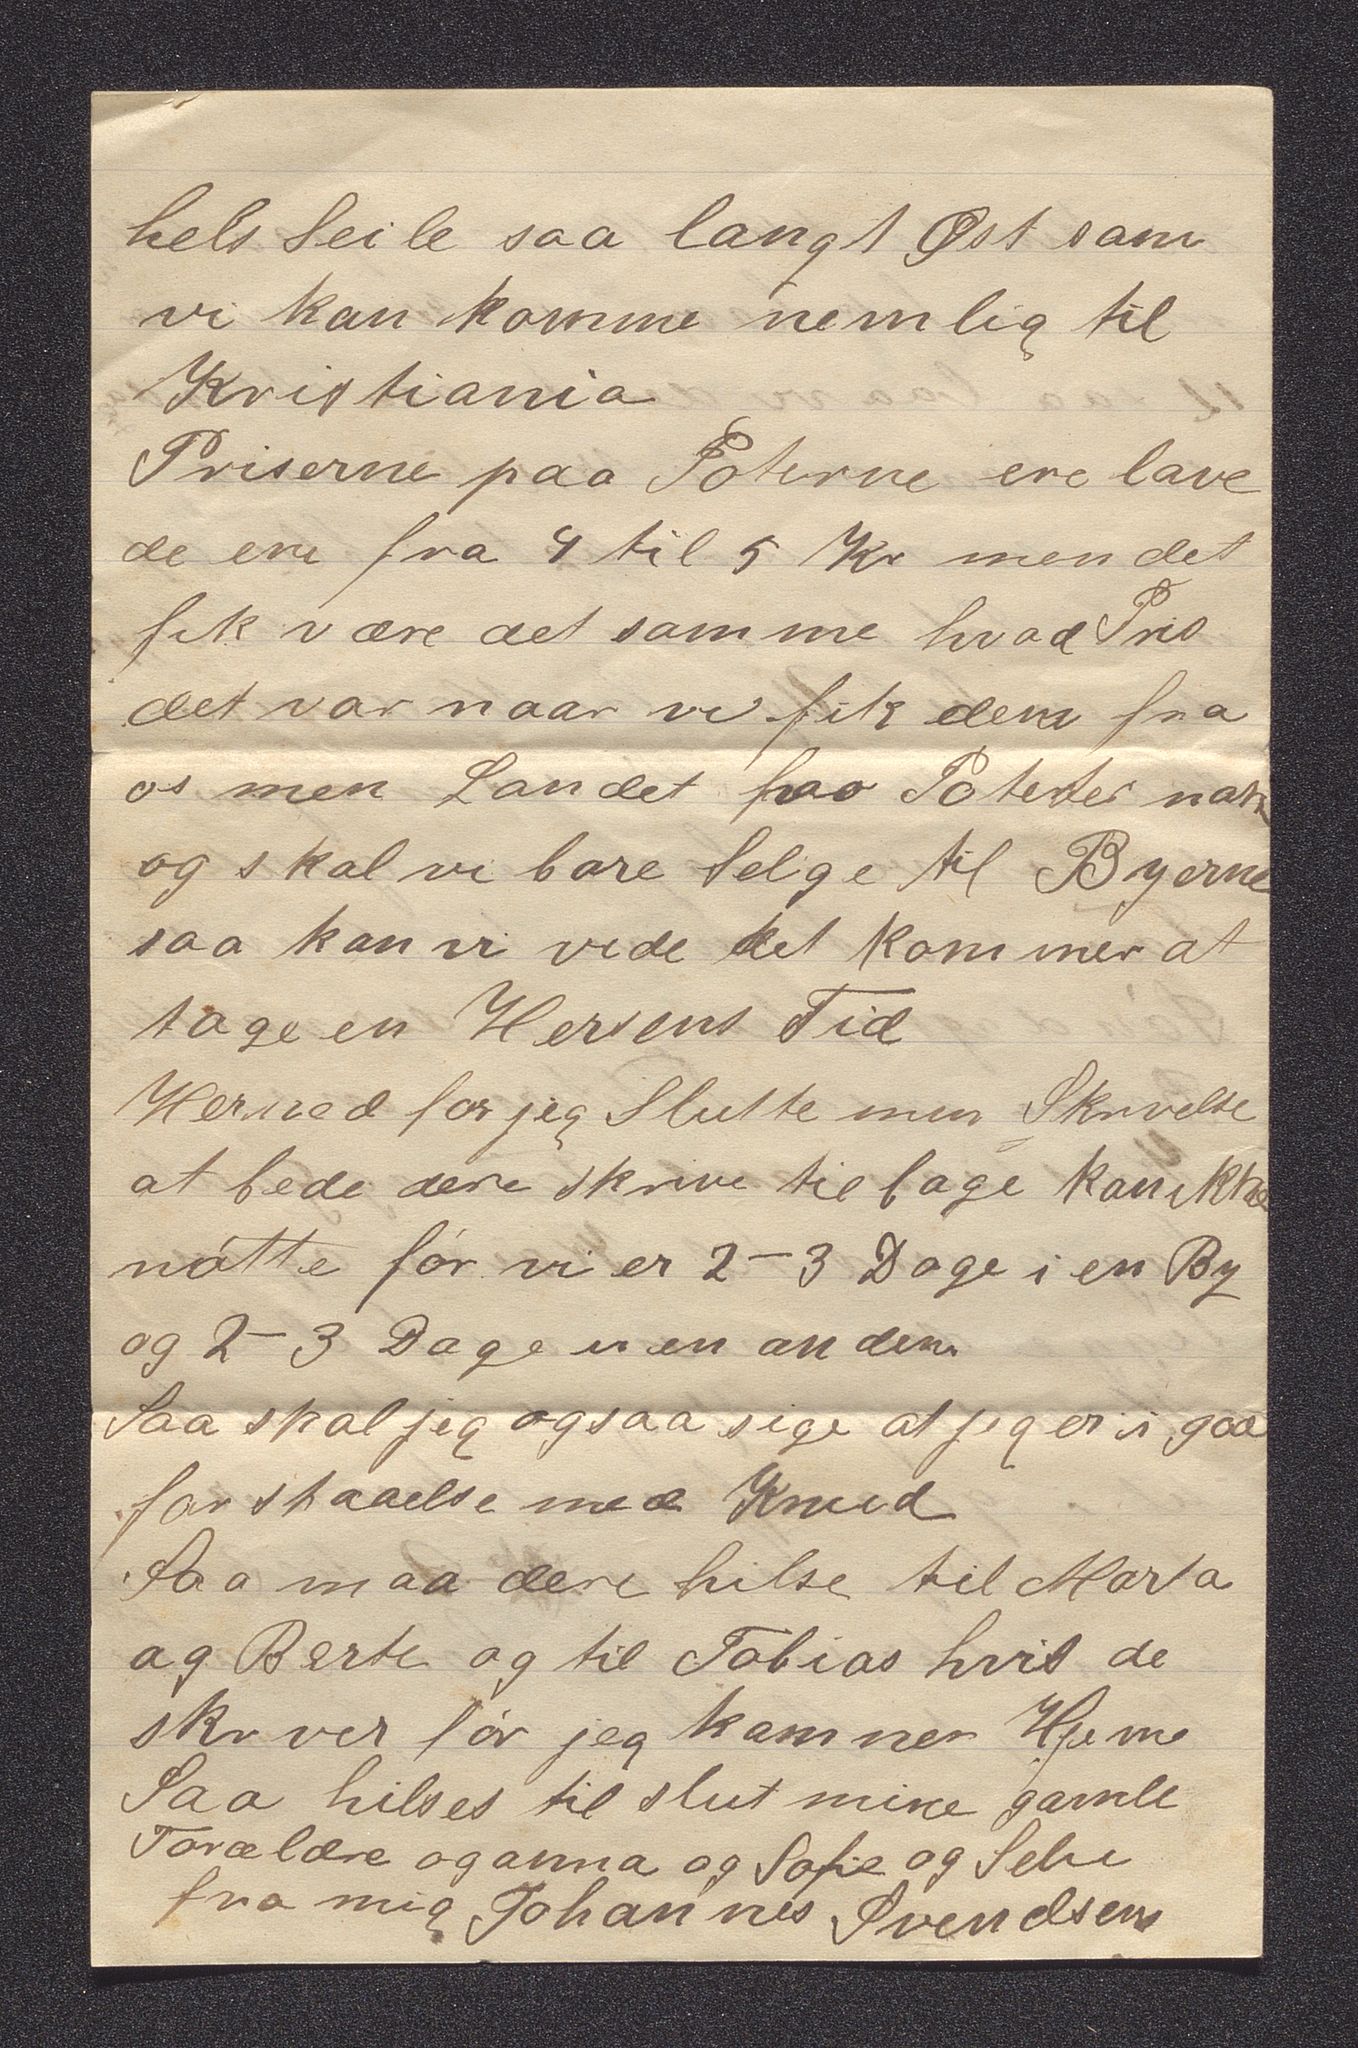 hels Seile saa langt Øst som
vi kan komme nemlig til
Kristiania
Priserne paa Poterne ere lave
de ere fra 4 til 5 Kr men det
fik være det samme hvad Pris
det var naar vi fik dem fra
os men Landet har Poteter nok
og skal vi bare Selge til Byerne
saa kan vi vide det kommer at
tage en Hersens Tid
Hermed for jeg Slutte min Skrivelse
at bede dere skrive tilbage kan ikke
nøtte før vi er 2-3 Dage i en By
og 2-3 Dage i en anden
Saa skal jeg ogsaa sige at jeg er i gaa
forstaaelse med Knud
Saa maa dere hilse til Marta
og Berte og til Tobias hvis de
skrver før jeg kommer Hjeme
Saa hilses til slut mine gamle
Forældre og anna og Sofie og
fra mig Johannes Svendsen